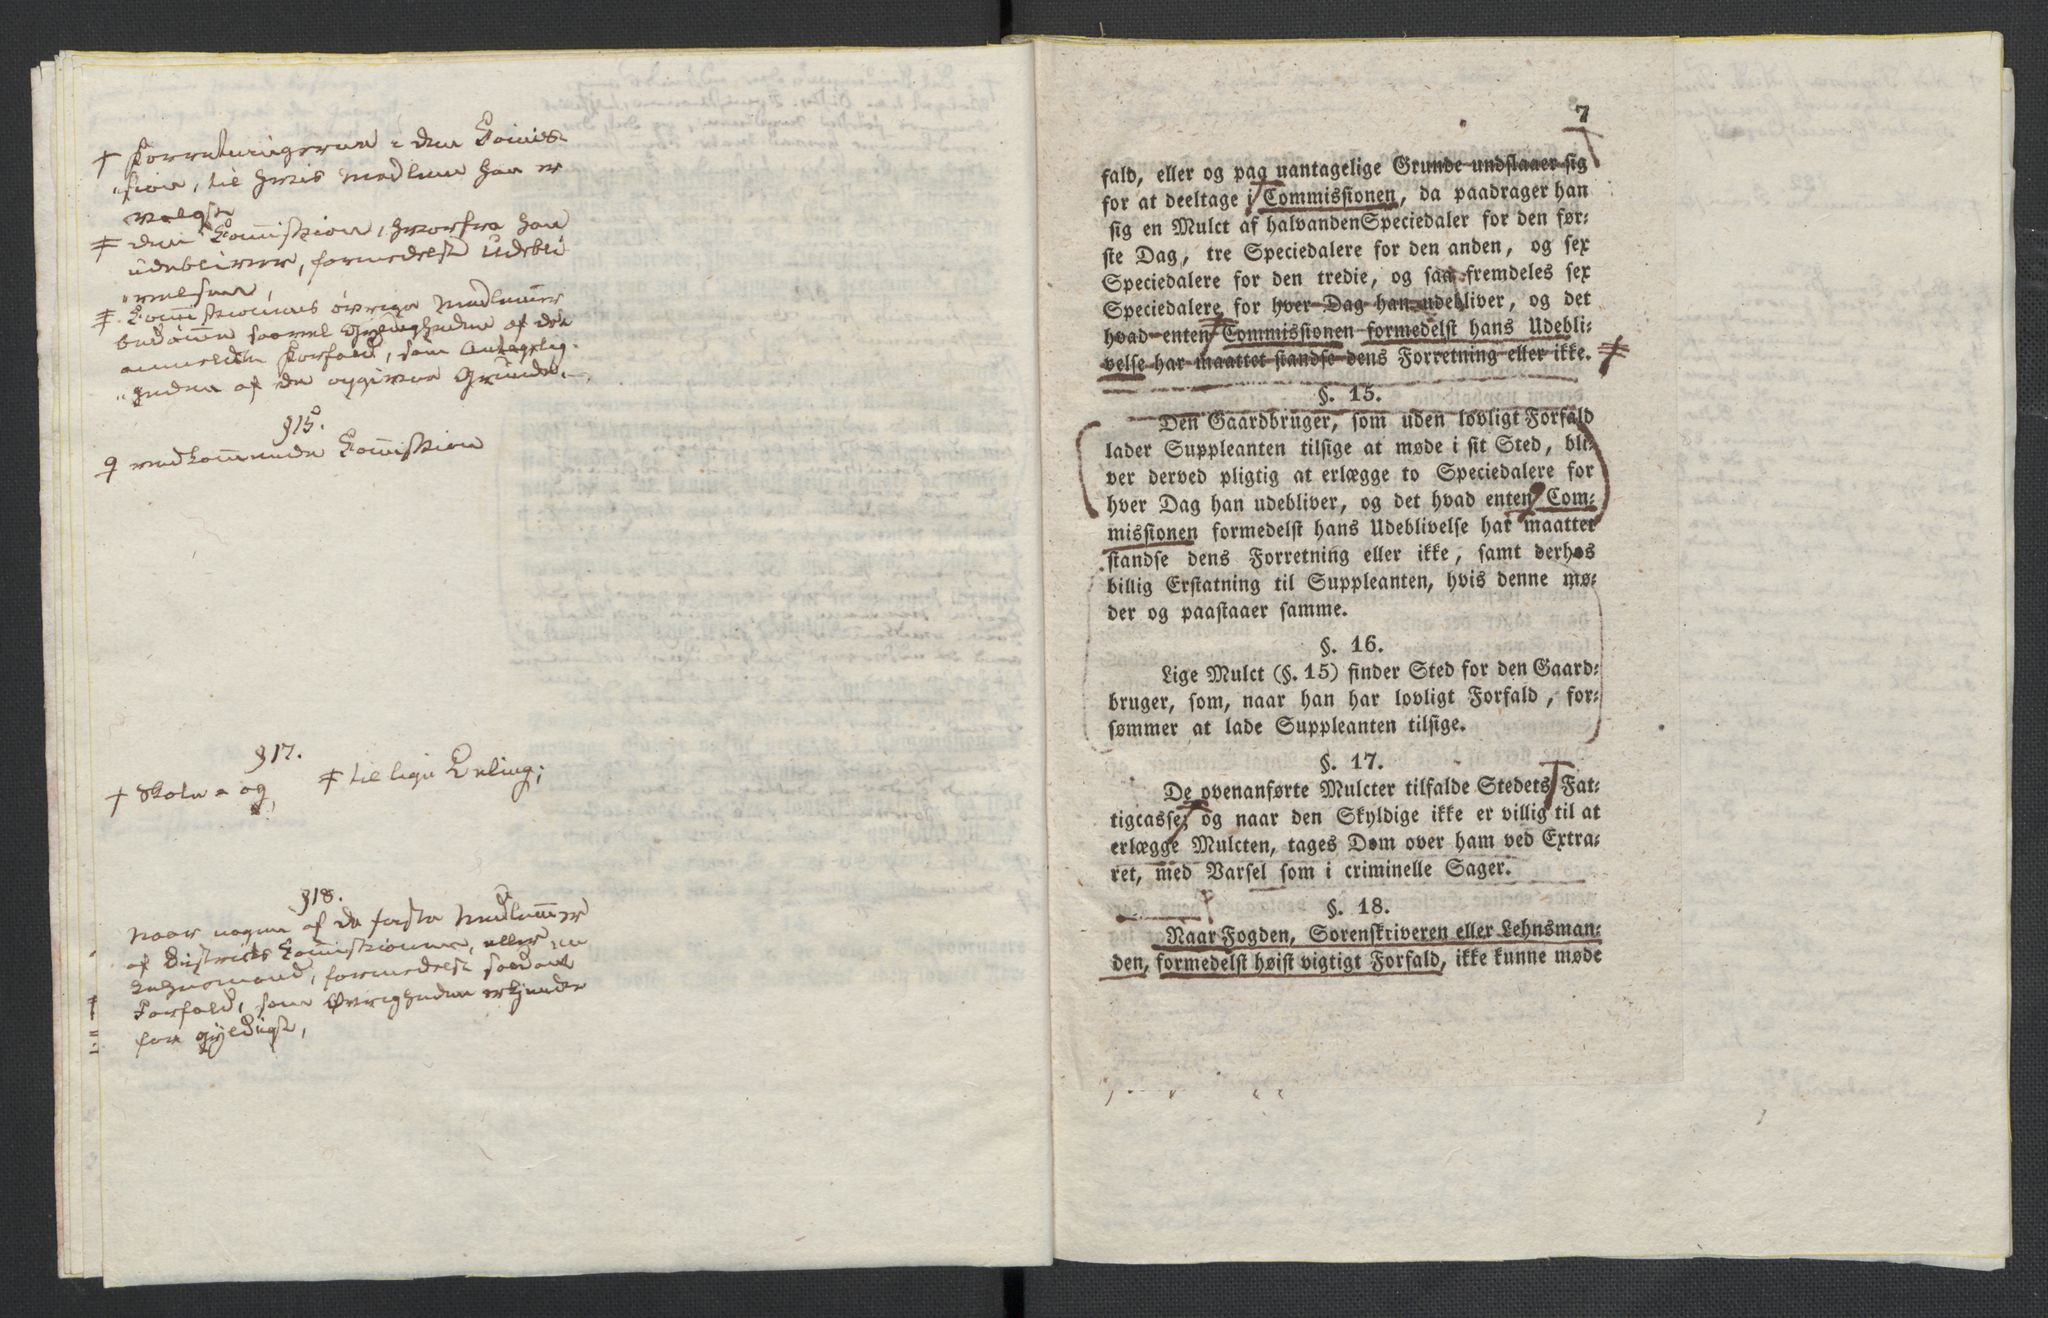 † Forretningerne i den Commis-
"sion, til hvis Medlem han er
valgt
‡ den Commission, hvorfra han
udebliver, formedelst Udebli
"velsen,
‡ Commissionens øvrige Medlemmer
bedømme saavel Gyldigheden af det
anmeldte Forfald, som Antagelig-
"heden af de opgivne Grunde.
§ 15.
vedkommende Commission
§ 17.
† Skole- og ‡ til lige Deling;
§ 18.
Naar nogen af de faste Medlemmer
af Districts Commissionerne, eller en
Lehnsmand, formedelst saadant
Forfald, som Øvrigheden erkjender
for gyldigt,
7
fald, eller og paa uantagelige Grunde undslaaer sig
for at deeltage i Commissionen, da paadrager han
sig en Mulct af halvanden Speciedaler for den før-
ste Dag, tre Speciedalere for den anden, og sex
Speciedalere for den tredie, og saa fremdeles sex
Speciedalere for hver Dag han udebliver, og det
hvad enten Commissionen formedelst hans Udebli-
velse har maattet standse dens Forretning eller ikke. ‡
§. 15.
Den Gaardbruger, som uden lovligt Forfald
lader Suppleanten tilsige at møde i sit Sted, bli-
ver derved pligtig at erlægge to Speciedalere for
hver Dag han udebliver, og det hvad enten Com-
missionen formedelst hans Udeblivelse har maattet
standse dens Forretning eller ikke, samt derhos
billig Erstatning til Suppleanten, hvis denne mø-
der og paastaaer samme.
§. 16.
Lige Mulct (§. 15) finder Sted for den Gaard-
bruger, som, naar han har lovligt Forfald, for-
sømmer at lade Suppleanten tilsige.
§. 17.
De ovenanførte Mulcter tilfalde Stedets Fat-
tigcasse; og naar den Skyldige ikke er villig til at
erlægge Mulcten, tages Dom over ham ved Extra-
ret, med Varsel som i criminelle Sager.
§. 18.
Naar Fogden, Sorenskriveren eller Lehnsman-
den, formedelst høist vigtigt Forfald, ikke kunne møde